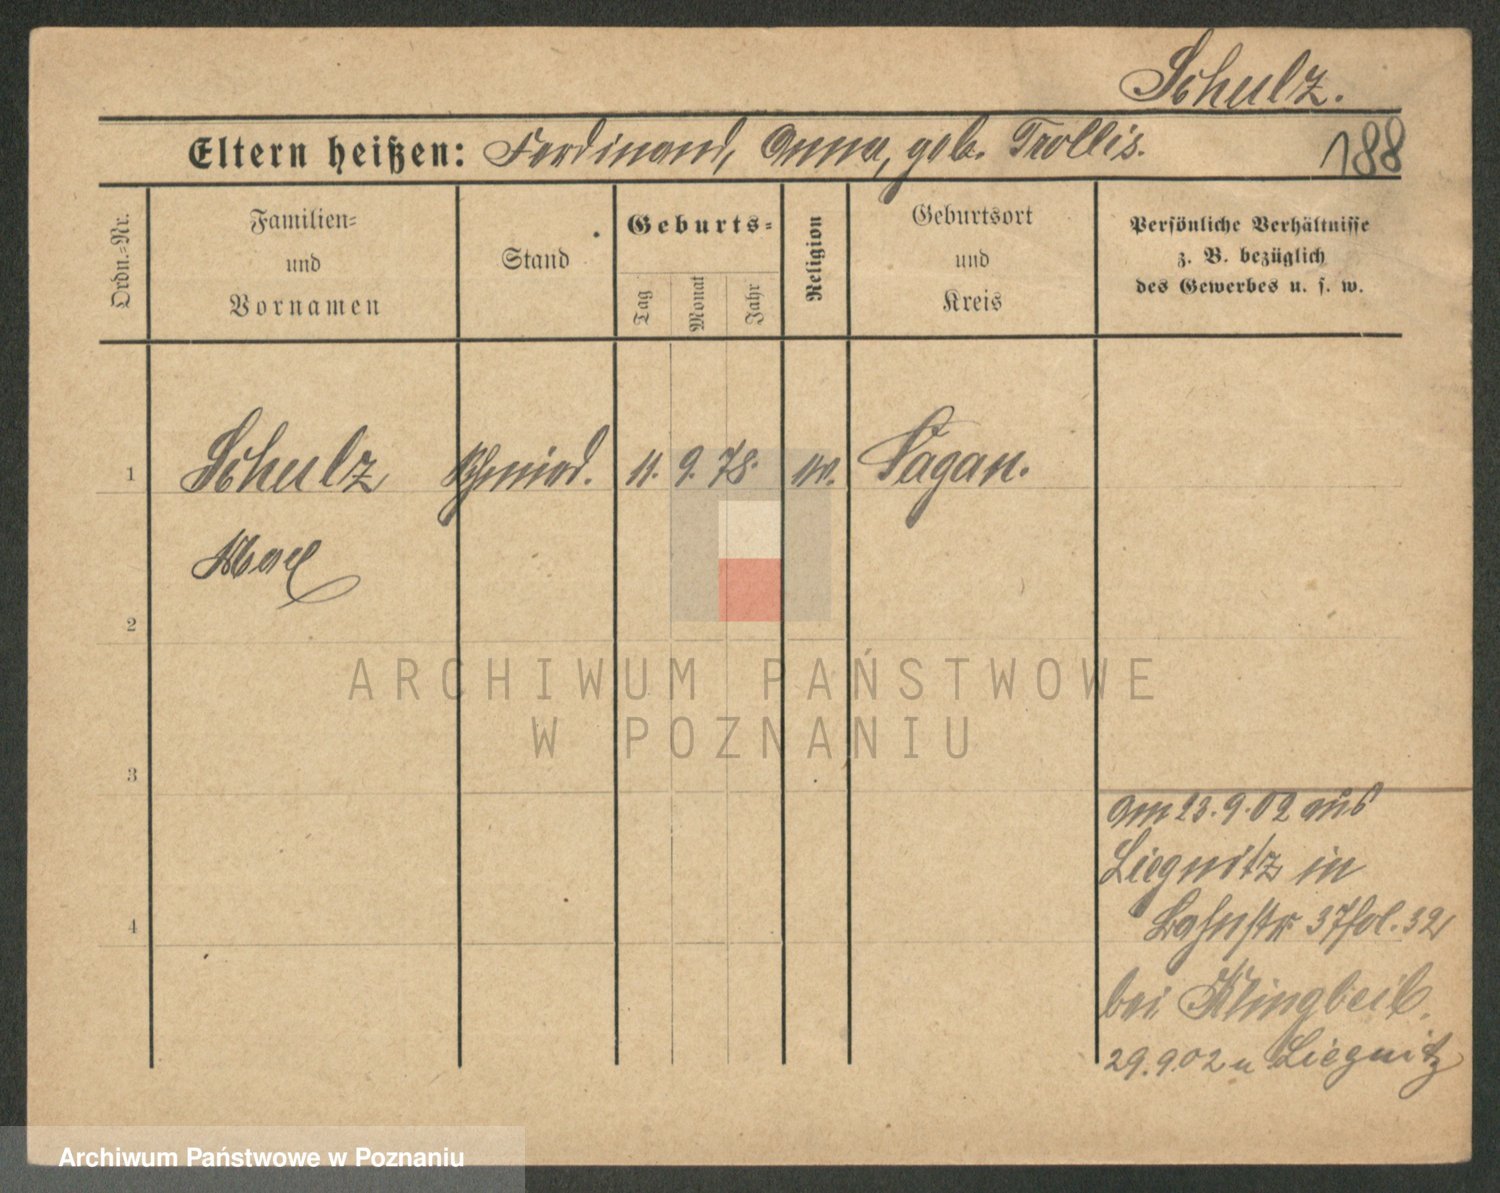 Schulz.
Eltern heißen: Ferdinand, Anna, geb. Trollis.
188
Ordn.-Nr.
Familien-
und
Vornamen
Stand
Geburts-
Tag
Monat
Jahr
Religion
Geburtsort
und
Kreis
Persönliche Verhältnisse
z. B. bezüglich
des Gewerbes u. s. w.
1
Schulz
Schmied.
11. 9. 78.
Sagan.
Max
2
ARCHIWUM PAŃSTWOWE
W POZNANIU
3
am 23.9.02 aus
Liegnitz in
4
Bahnstr 37 fol. 32
bei Klingbeil.
29.9.02 n Liegnitz
Archiwum Państwowe w Poznaniu